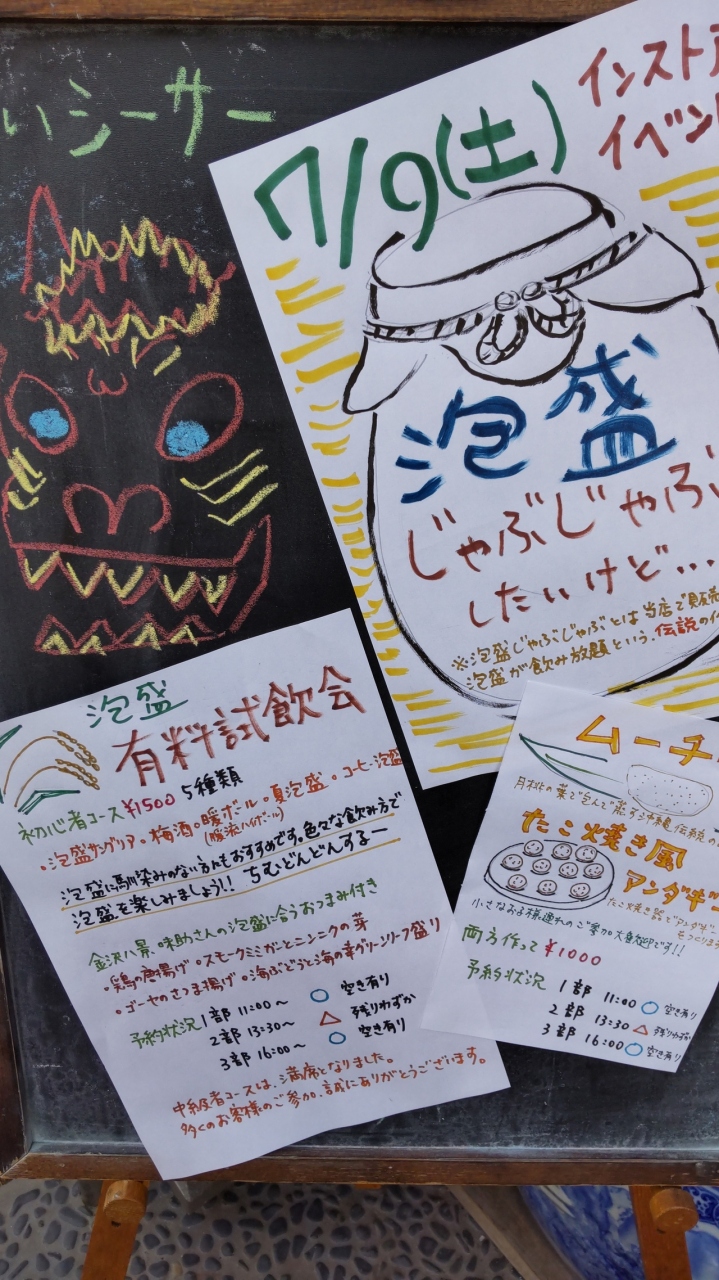 いシーサー
インスト
イベン
7/9(土)
泡盛
じゃぶじゃぶ
したいけど...
※泡盛じゃぶじゃぶとは当店で販売
泡盛が飲み放題という、伝説の
泡盛
有料試飲会
初心者コース ¥1500 5種類
・泡盛サングリア・梅酒・暖ボール・夏泡盛・コーヒー泡盛
(暖流ハイボール)
泡盛に馴染みのない方にもおすすめです。色々な飲み方で
泡盛を楽しみましょう!! ちむどんどんするー
金沢八景、味助さんの泡盛に合うおつまみ付き
・鶏の唐揚げ・スモークミミガーとニンニクの芽
・ゴーヤのさつま揚げ・海ぶどうと海の幸グリーンリーフ盛り
予約状況 1部 11:00~ ○ 空き有り
2部 13:30~ △ 残りわずか
3部 16:00~ ○ 空き有り
中級者コースは、満席となりました。
多くのお客様のご参加、誠にありがとうございます。
ムーチ
月桃の葉で包んで蒸す沖縄伝統の
たこ焼き風
アンダギー
たこ焼き器でアンダギー
小さなお子様連れのご参加大歓迎です!!
両方作って ¥1000
予約状況 1部 11:00 ○ 空き有り
2部 13:30 △ 残りわずか
3部 16:00 ○ 空き有り